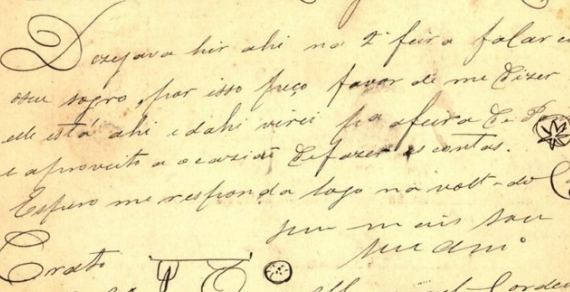 Dezejava hir ahi na 2ª feira falar c
oseu sogro, por isso peço favor de me dizer
elle está ahi e dahi virei p.a afeira de P
e aproveito a ocazião defazer as contas.
Espero me responda logo na volta do
sem mais sou
seu am.º
Crato